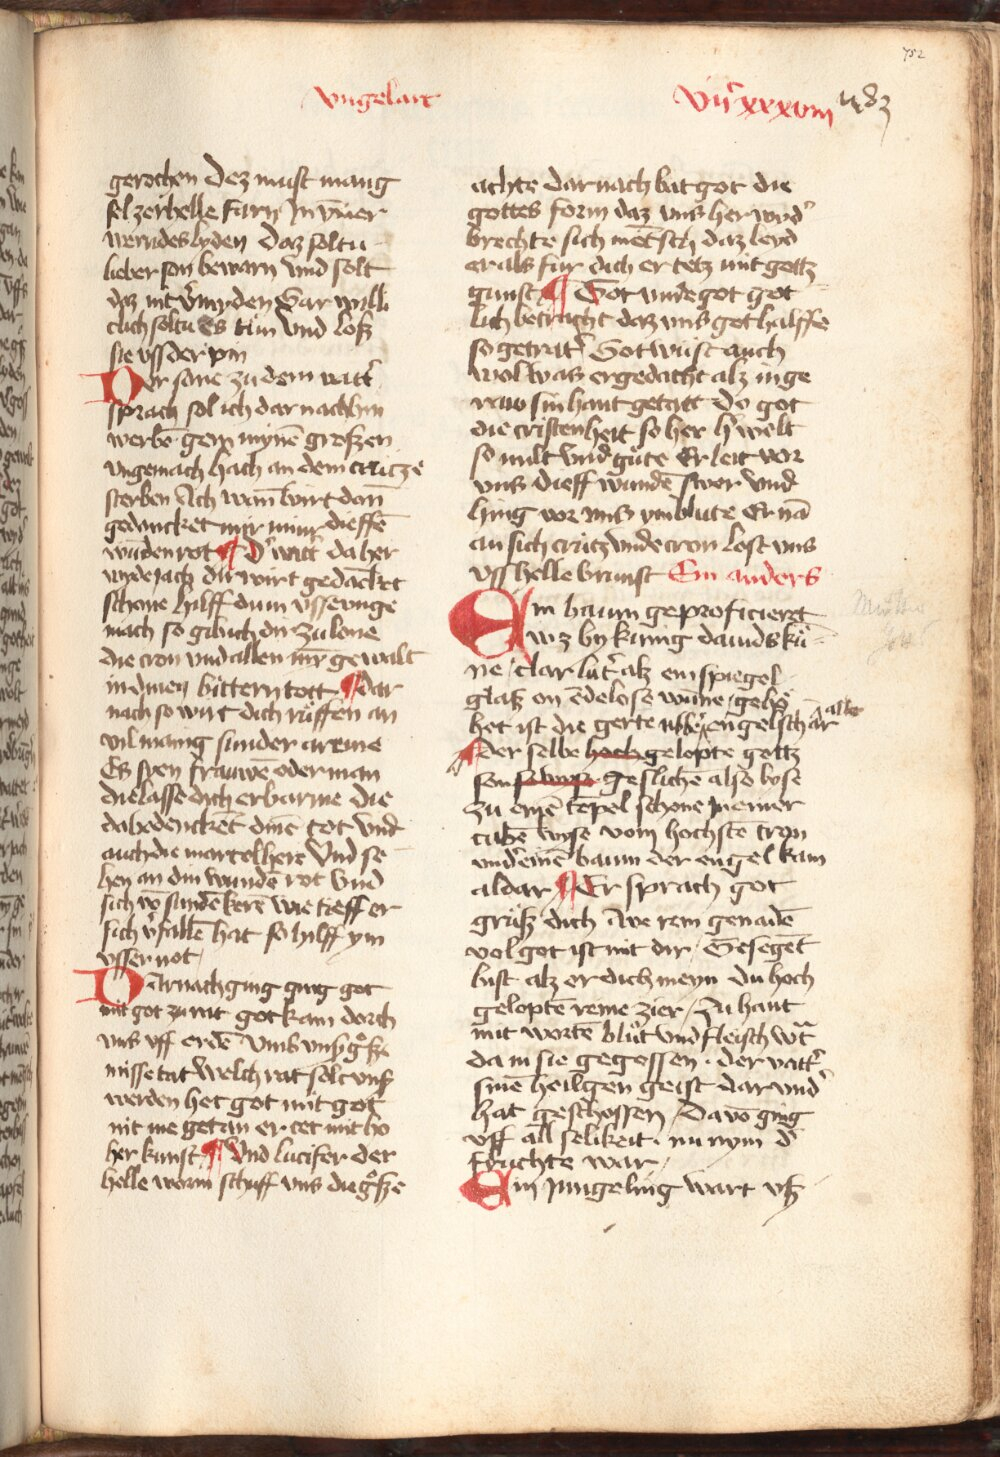 752
vngelart
vijc xxxviij
gerochen Dez must mang
sel zer helle farn In vnser
werndes lyden daz soltu
lieber son bewarn Vnd solt
daz nit vͤmyden Gar willi
clich soltu Es tun Vnd losz
sie vsz der pin
Der sone zu dem vattͤ
sprach sol ich dar nach hin
werbē gern mynē groszen
vngemach hach an dem crutze
sterben Ach wan wirt dan
gedancket mir miner dieffē
wunden rot Dͤ vattͤ da her
wyde jach dir wirt gedancket
schone hilff du in vsz ewige
mach so gib ich dir zu lone
die cron vnd allen mȳ gewalt
in dinen bittern tott dar
nach so wirt dich ruffen an
vil manig sunder arme
Es syen frauwē oder man
die lasse dich erbarme die
da bedenckēt dinē tot vnd
auch die martel here Vnd se
hen an din wundē rot Vnd
sich vō sundē kerē wie tieff er
sich vͤfallē hat so hilff ym
vsser not
Darnach ging ging got
mit got zu rat got kam dorch
vns vff erdē Vmb vns grosze
missetat Welch rat solt vnsz
werden het got mit got
nit me getan er tet mit ho
her kunst Vnd lucifer der
helle worm schuff vns die grosze
achte dar nach bat got die
gottes form daz vns her widͤ
brechte sich mētsch daz leyd
er als fur dich er tetz mit gottz
gunst Got vnde got got
lich betracht daz vns got halffe
so getratͤ Got wust auch
wol was er gedacht alz in ge
sin hant getatt Do got
die cristenheit so her hͤ welt
so milt vnd gute Er leit vor
vns dieff wunde swer vnd
hing vor vns ym blute Er nā
an sich crutz vnde cron Lost vns
vsz helle brunst Ein anders
Ein baum geproficieret
waz by kunig dauids kū
ne / clar lutͤ alz ein spiegel
glasz on ēdelose wūne / gehͦ
het ist die gerte engelsch ar
Der selbe hoch gelopte gottz
son geslichē also lyse
zu einē tēpel schone In einer
tubē wyse vom hochstē tron
vndͤ einē baum der engel kam
aldar Er sprach got
grusz dich Awe rein genadē
vol got ist mit dir / Gesegēt
bist alz er dich meyn du hoch
geloptē reine zier / Zu hant
mit wortē blut vnd fleisch wͣt
da in sie gegossen . der vattͤ
sinē heilgen geist dar vndͤ
hat geschossen / Da vō ging
vff all selikeit . nu nym dͤ
fruchte war /
Ein Jungeling wart vsz